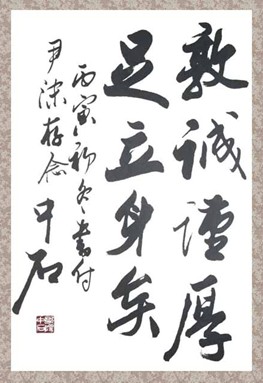 敦诚谨厚
足立身矣
丙寅初冬书付
尹潆存念中石